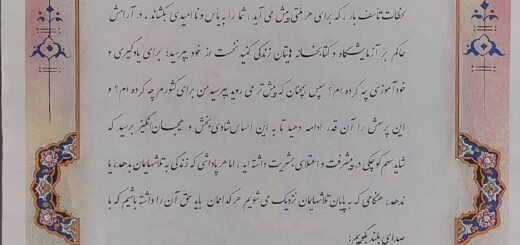 لحظات تأسف بار، که برای هر ملتی پیش می آید، شما را به یأس و ناامیدی بکشاند. در آرامش
حاکم بر آزمایشگاه و کتابخانه هایتان زندگی کنید نخست از خود بپرسید: برای یادگیری و
خودآموزی چه کرده ام؟ سپس همچنان که پیش تر می روید بپرسید من برای کشورم چه کرده ام؟ و
این پرسش را آن قدر ادامه دهید تا به این احساس شادی بخش و هیجان انگیز برسید که
شاید سهم کوچکی در پیشرفت و اعتلای بشریت داشته اید، اما هر پاداشی که زندگی به تلاشهایمان بدهد، یا
ندهد، هنگامی که به پایان تلاشهایمان نزدیک می شویم هر کداممان باید حق آن را داشته باشیم که با
صدای بلند بگوییم: